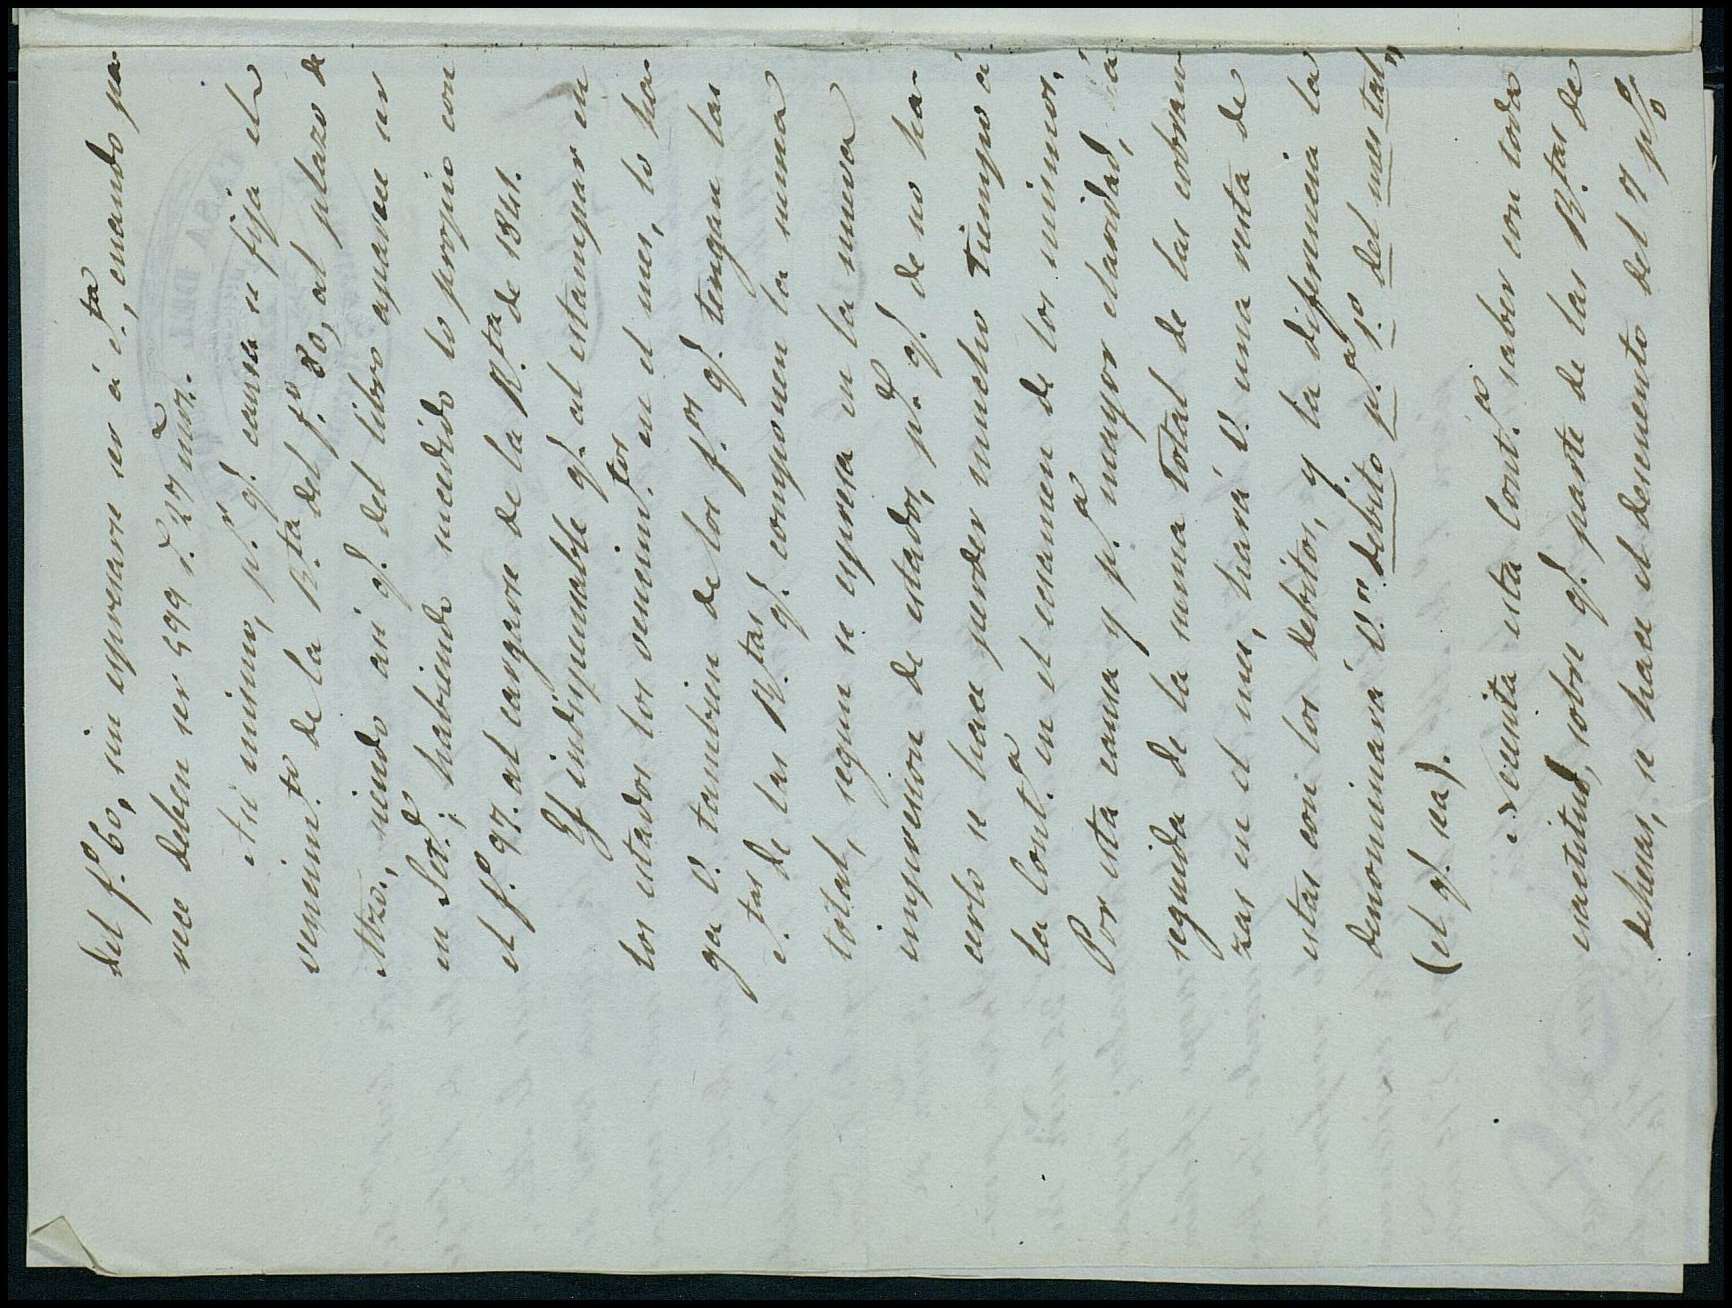 del f.º 60, sin espresarse ser á c.ta, cuando pa-
rece deben ser 599 r.s 27 mrs.
Asi mismo, p.r q.e causa se fija el
vencim.to de la R.ta del f.º 80, al plazo de
Mzo., siendo asi q.e del libro aparece ser
en Set.e; habiendo sucedido lo propio con
el f.º 97. al cargarse de la R.ta de 1841.
Es indispensable q.e al estampar en
los estados los vencim.tos en el mes, lo ha-
ga V. tambien de los f.os q.e tengan las
c.tas de las R.tas q.e componen la suma
total, segun se espresa en la nueva
impresion de estados, p.s q.e de no ha-
cerlo se hace perder mucho tiempo á
la Cont.a en el ecsamen de los mismos.
Por esta causa y p.a mayor claridad, á
seguida de la suma total de las cobran-
zas en el mes, hará V. una resta de
estas con los debitos, y la diferencia la
denominará V. "debito p.a 1.º del mes tal"
(el q.e sea).
Necesita esta Cont.a saber con toda
esactitud, sobre q.e parte de las R.tas de
dehesas, se hace el descuento del 7 p%